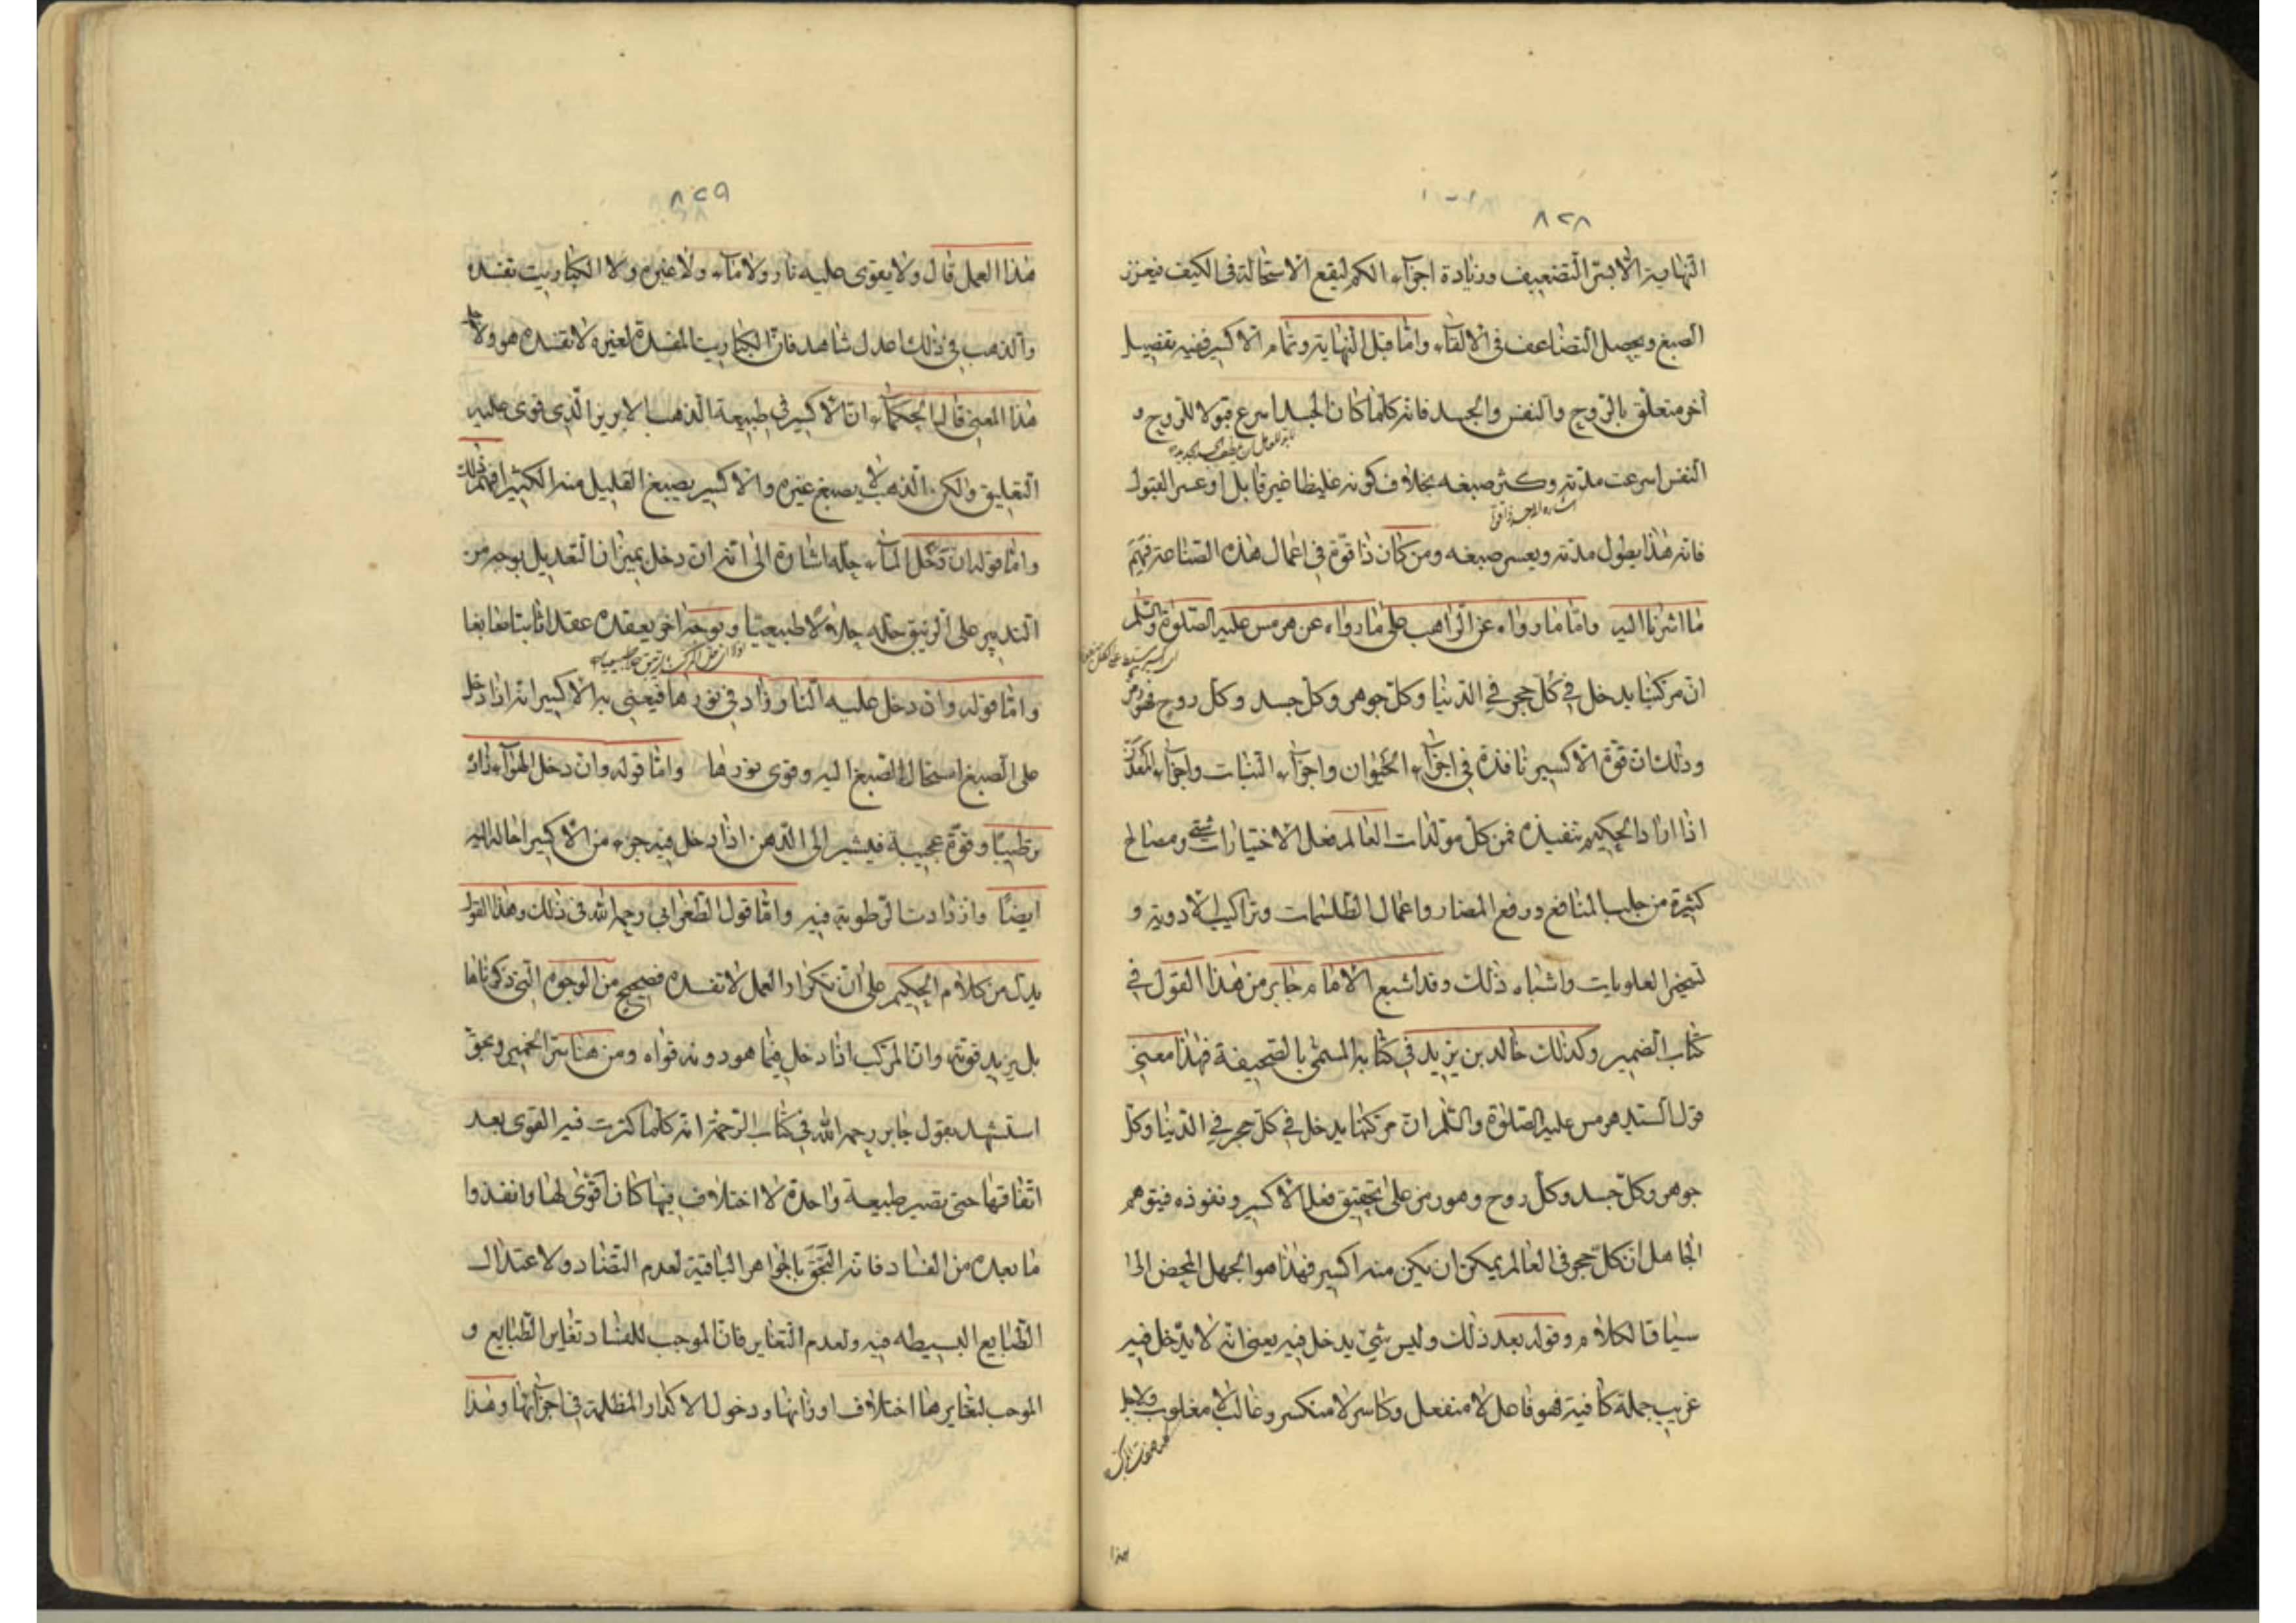 ٨٢٨
النهاية الا بسّر التضعيف وزيادة اجزآء الكم ليقع الاستحالة فى الكيف فيعزز
الصبغ ويحصل التضاعف فى الالقآء وامّا قبل النهاية وتمام الاكسير ففيه تفصيل
آخر متعلق بالرّوح والنفس والجسد فانه كلّما كان الجسد اسرع قبولا للروح و
النفس اسرعت مدّته وكثر صبغه بخلاف كونه غليظا غير قابل او عسر القبول
فانه هذا يطول مدّته ويعسر صبغه ومن كان ذا قوّة فى اعمال هذه الصناعة فهم
ما اشرنا اليه وامّا ما رواه عن الراهب على ما رواه عن هرمس عليه الصلوة والسّلم
انّ مركبنا يدخل فى كلّ حجر فى الدنيا وكلّ جوهر وكلّ جسد وكلّ روح فهو رمز
وذلك ان قوّة الاكسير نافذة فى اجزآء الحيوان واجزآء النبات واجزآء المعدن
اذا اراد الحكيم تنفيذه فمن كلّ مولدات العالم فعل الاختيارات شتى ومصالح
كثيرة من جلب المنافع ودفع المضار واعمال الطلسمات وتراكيب الادوية و
تسخير العلويات واشباه ذلك وقد اشبع الامام جابر من هذا القول فى
كتاب الضمير وكذلك خالد بن يزيد فى كتابه المسمّى بالصحيفة فهذا معنى
قول السيد هرمس عليه الصلوة والسّلم ان مركبنا يدخل فى كلّ حجر فى الدنيا وكلّ
جوهر وكلّ جسد وكلّ روح وهو رمز على تحقيق فعل الاكسير ونفوذه فيتوهم
الجاهل ان كلّ حجر فى العالم يمكن ان يكن منه اكسير فهذا هو الجهل المحض الى
سياق الكلام وقوله بعد ذلك وليس شئ يدخل فيه يعنى انه لا يدخل فيه
غريب جملة كافية فهو فاعل لا منفعل وكاسر لا منكسر وغالب لا مغلوب ولاجل
هذا
٨٢٩
هذا العمل قال ولا يقوى عليه نار ولا مآء ولا غيره ولا الكباريت تفسده
والذهب فى ذلك اعدل شاهد فان الكباريت المفسدة لغيره لا تفسده هو ولاجل
هذا المعنى قال الحكمآء ان الاكسير فى طبيعة الذهب الابريز الّذى قوى عليه
التعليق ولكن الذهب لا يصبغ غيره والاكسير يصبغ القليل منه الكثير افهم ذلك
وامّا قوله ان دخل المآء حلّه اشارة الى انّه ان دخل بميزان التعديل بوجه من
التدبير على الزئبق حلّه حلاّ طبيعيّا وبوجه اخر يعقده عقدا ثابتا صابغا
وامّا قوله وان دخل عليه النار زاد فى نورها فيعنى به الاكسير انه اذا دخل
على الصبغ استحال الصبغ اليه وقوى نورها وامّا قوله وان دخل الهوآء زاد
ترطيبا وقوّة عجيبة فيشير الى الدهن اذا دخل فيه جزء من الاكسير احاله اليه
ايضا وازدادت الرّطوبة فيه وامّا قول الطغرائى رحمه الله فى ذلك وهذا القول
يدلّ من كلام الحكيم على ان تكرار العمل لا تفسده فصحيح من الوجوه الّتى ذكرناها
بل يزيد قوّته وان المركب اذا دخل فيما هو دونه قواه ومن هنا سرّ الخمير وبحق
استشهد بقول جابر رحمه الله فى كتاب الرحمة انه كلما كثرت فيه القوى بعد
اتفاقها حتى تصير طبيعة واحدة لا اختلاف فيها كان اقوى لها وانفذوا
ما بعده من الفساد فانه التحق بالجواهر الباقية لعدم التضاد ولاعتدال
الطبايع البسيطه فيه ولعدم التغاير فان الموجب للفساد تغاير الطبايع و
الموجب لتغايرها اختلاف اوزانها ودخول الاكدار المظلمة فى اجزآئها وهذا